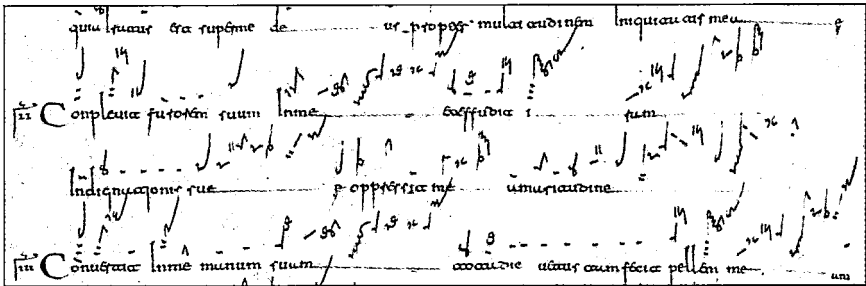 quia iratus est superme de us propter multitudinem Iniquitatis mea e
II Conplevit furorem suum Inme et effudit i ram
Indignationis sue e oppressit me amaritudine
III Convertit Inme manum suum tota die vetustam fecit pellem me am